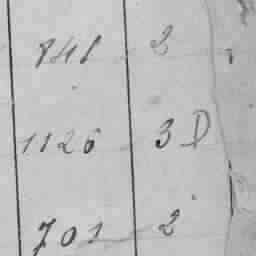 841 2
1126 3 D
701 2